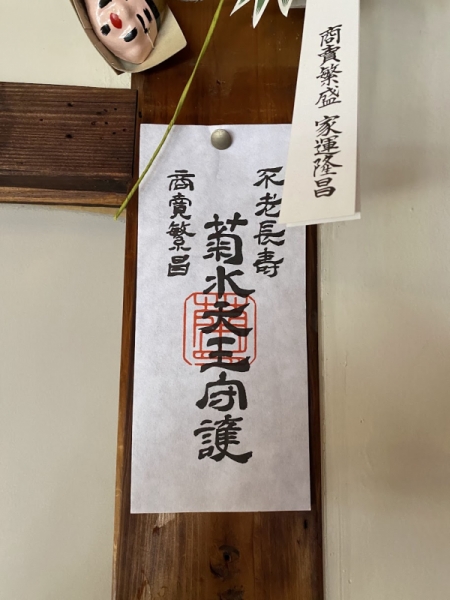 商賣繁盛 家運隆昌
不老長寿
菊水天王守護
商賣繁昌